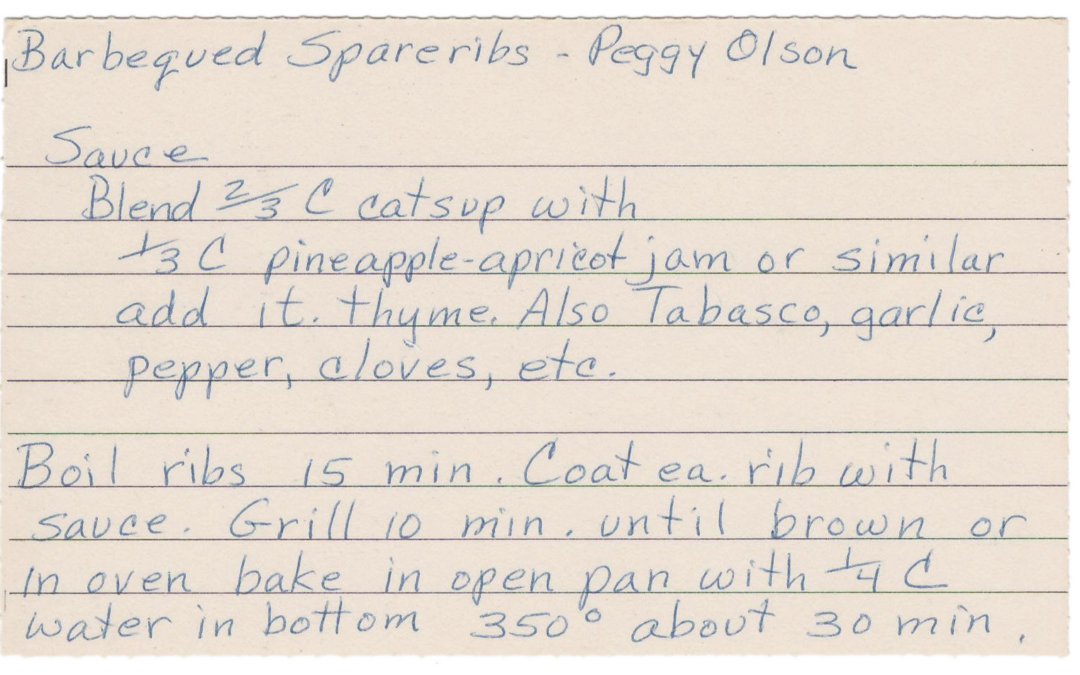 Barbequed Spareribs - Peggy Olson
Sauce
Blend 2/3 C catsup with
1/3 C pineapple-apricot jam or similar
add it. thyme. Also Tabasco, garlic,
pepper, cloves, etc.
Boil ribs 15 min. Coat ea. rib with
sauce. Grill 10 min. until brown or
in oven bake in open pan with 1/4 C
water in bottom 350° about 30 min.